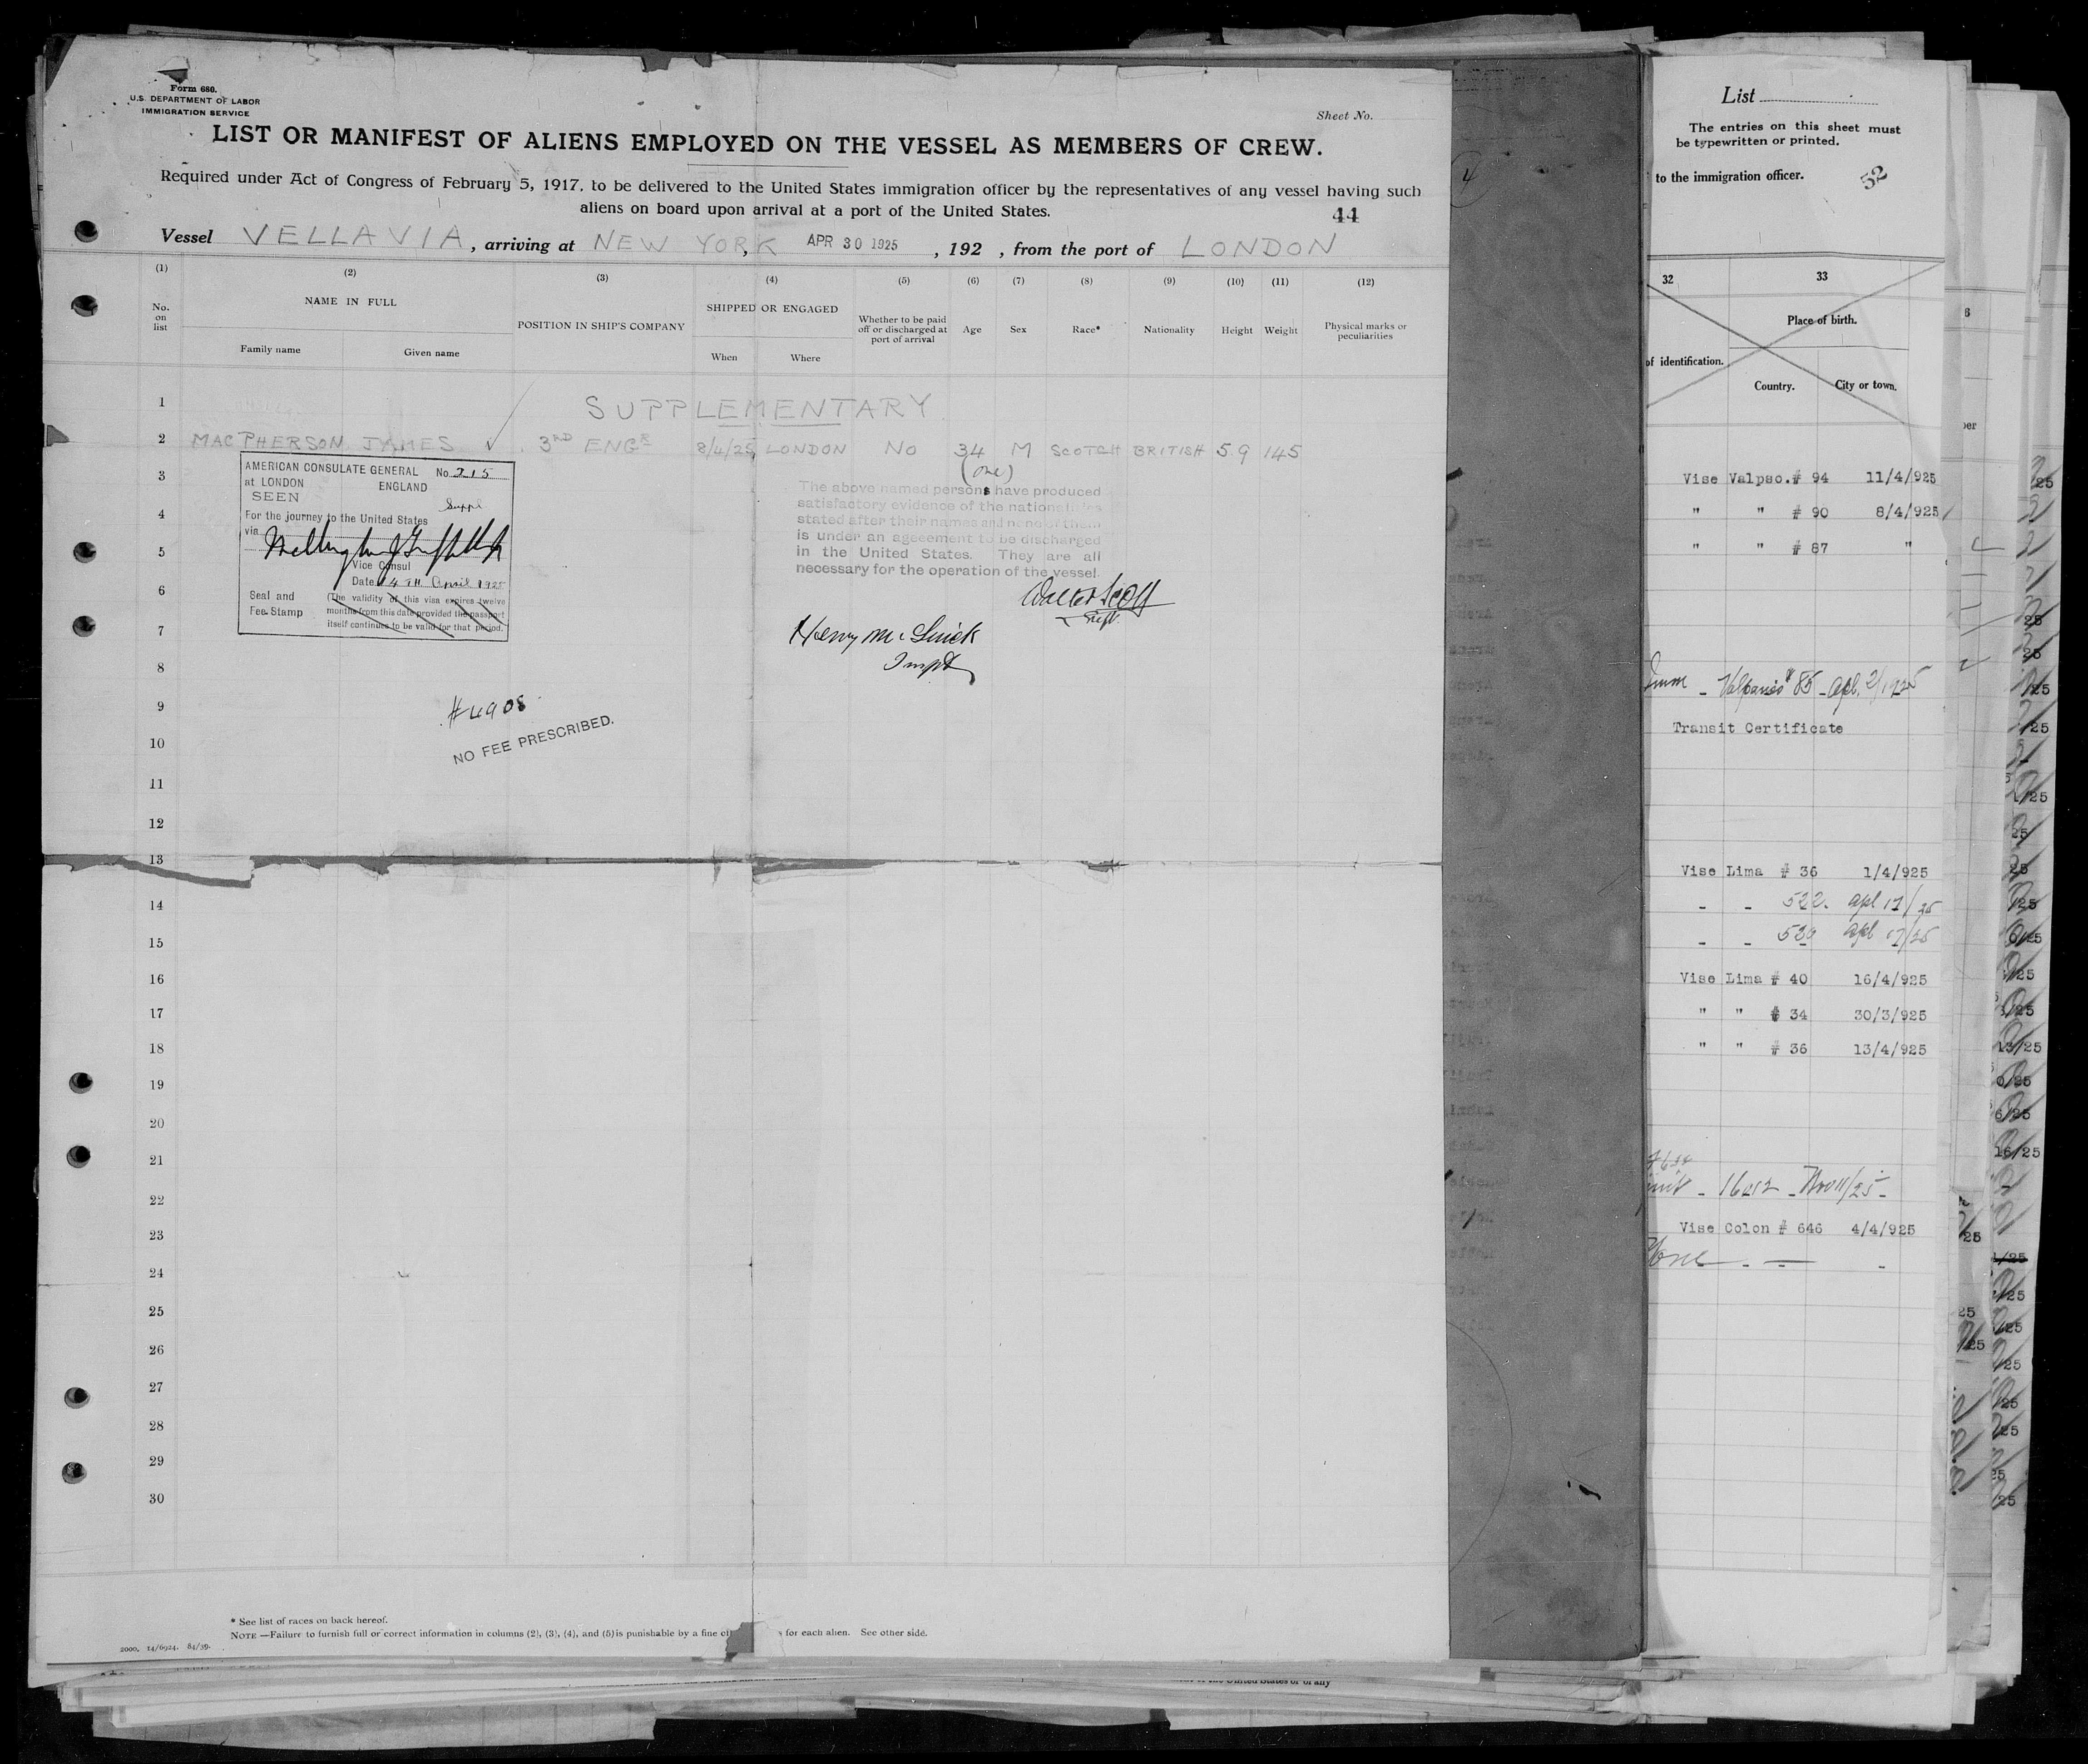 Form 680.
U.S. DEPARTMENT OF LABOR
IMMIGRATION SERVICE
Sheet No.
LIST OR MANIFEST OF ALIENS EMPLOYED ON THE VESSEL AS MEMBERS OF CREW.
Required under Act of Congress of February 5, 1917, to be delivered to the United States immigration officer by the representatives of any vessel having such
aliens on board upon arrival at a port of the United States.
44
Vessel VELLAVIA, arriving at NEW YORK, APR 30 1925, 192 , from the port of LONDON
(1) (2) (3) (4) (5) (6) (7) (8) (9) (10) (11) (12)
No. on list
NAME IN FULL
Family name Given name
POSITION IN SHIP'S COMPANY
SHIPPED OR ENGAGED
When Where
Whether to be paid off or discharged at port of arrival
Age Sex Race* Nationality Height Weight
Physical marks or peculiarities
1 SUPPLEMENTARY
2 MACPHERSON JAMES 3RD ENGR 8/4/25 LONDON NO 34 M SCOTCH BRITISH 5.9 145
(one)
3
4
5
6
7
8
9
10
11
12
13
14
15
16
17
18
19
20
21
22
23
24
25
26
27
28
29
30
AMERICAN CONSULATE GENERAL No. 215
at LONDON ENGLAND
SEEN
Suppl
For the journey to the United States
via
Vice Consul
Date 14TH April 1925
Seal and
Fee Stamp
(The validity of this visa expires twelve
months from this date provided the passport
itself continues to be valid for that period.
The above named persons have produced
satisfactory evidence of the nationalities
stated after their names and none of them
is under an ageeement to be discharged
in the United States. They are all
necessary for the operation of the vessel.
Walter Scott
Henry
Inspt
#4908
NO FEE PRESCRIBED.
* See list of races on back hereof.
NOTE —Failure to furnish full or correct information in columns (2), (3), (4), and (5) is punishable by a fine of for each alien. See other side.
2000. 14/6924. 84/39.
List
The entries on this sheet must
be typewritten or printed.
to the immigration officer.
52
32 33
Place of birth.
of identification.
Country. City or town.
Vise Valpso.# 94 11/4/925
" " # 90 8/4/925
" " # 87 "
Transit Certificate
Vise Lima # 36 1/4/925
- - 522. apl 17/25
apl 17/25
Vise Lima # 40 16/4/925
" " # 34 30/3/925
" " # 36 13/4/925
Vise Colon # 646 4/4/925